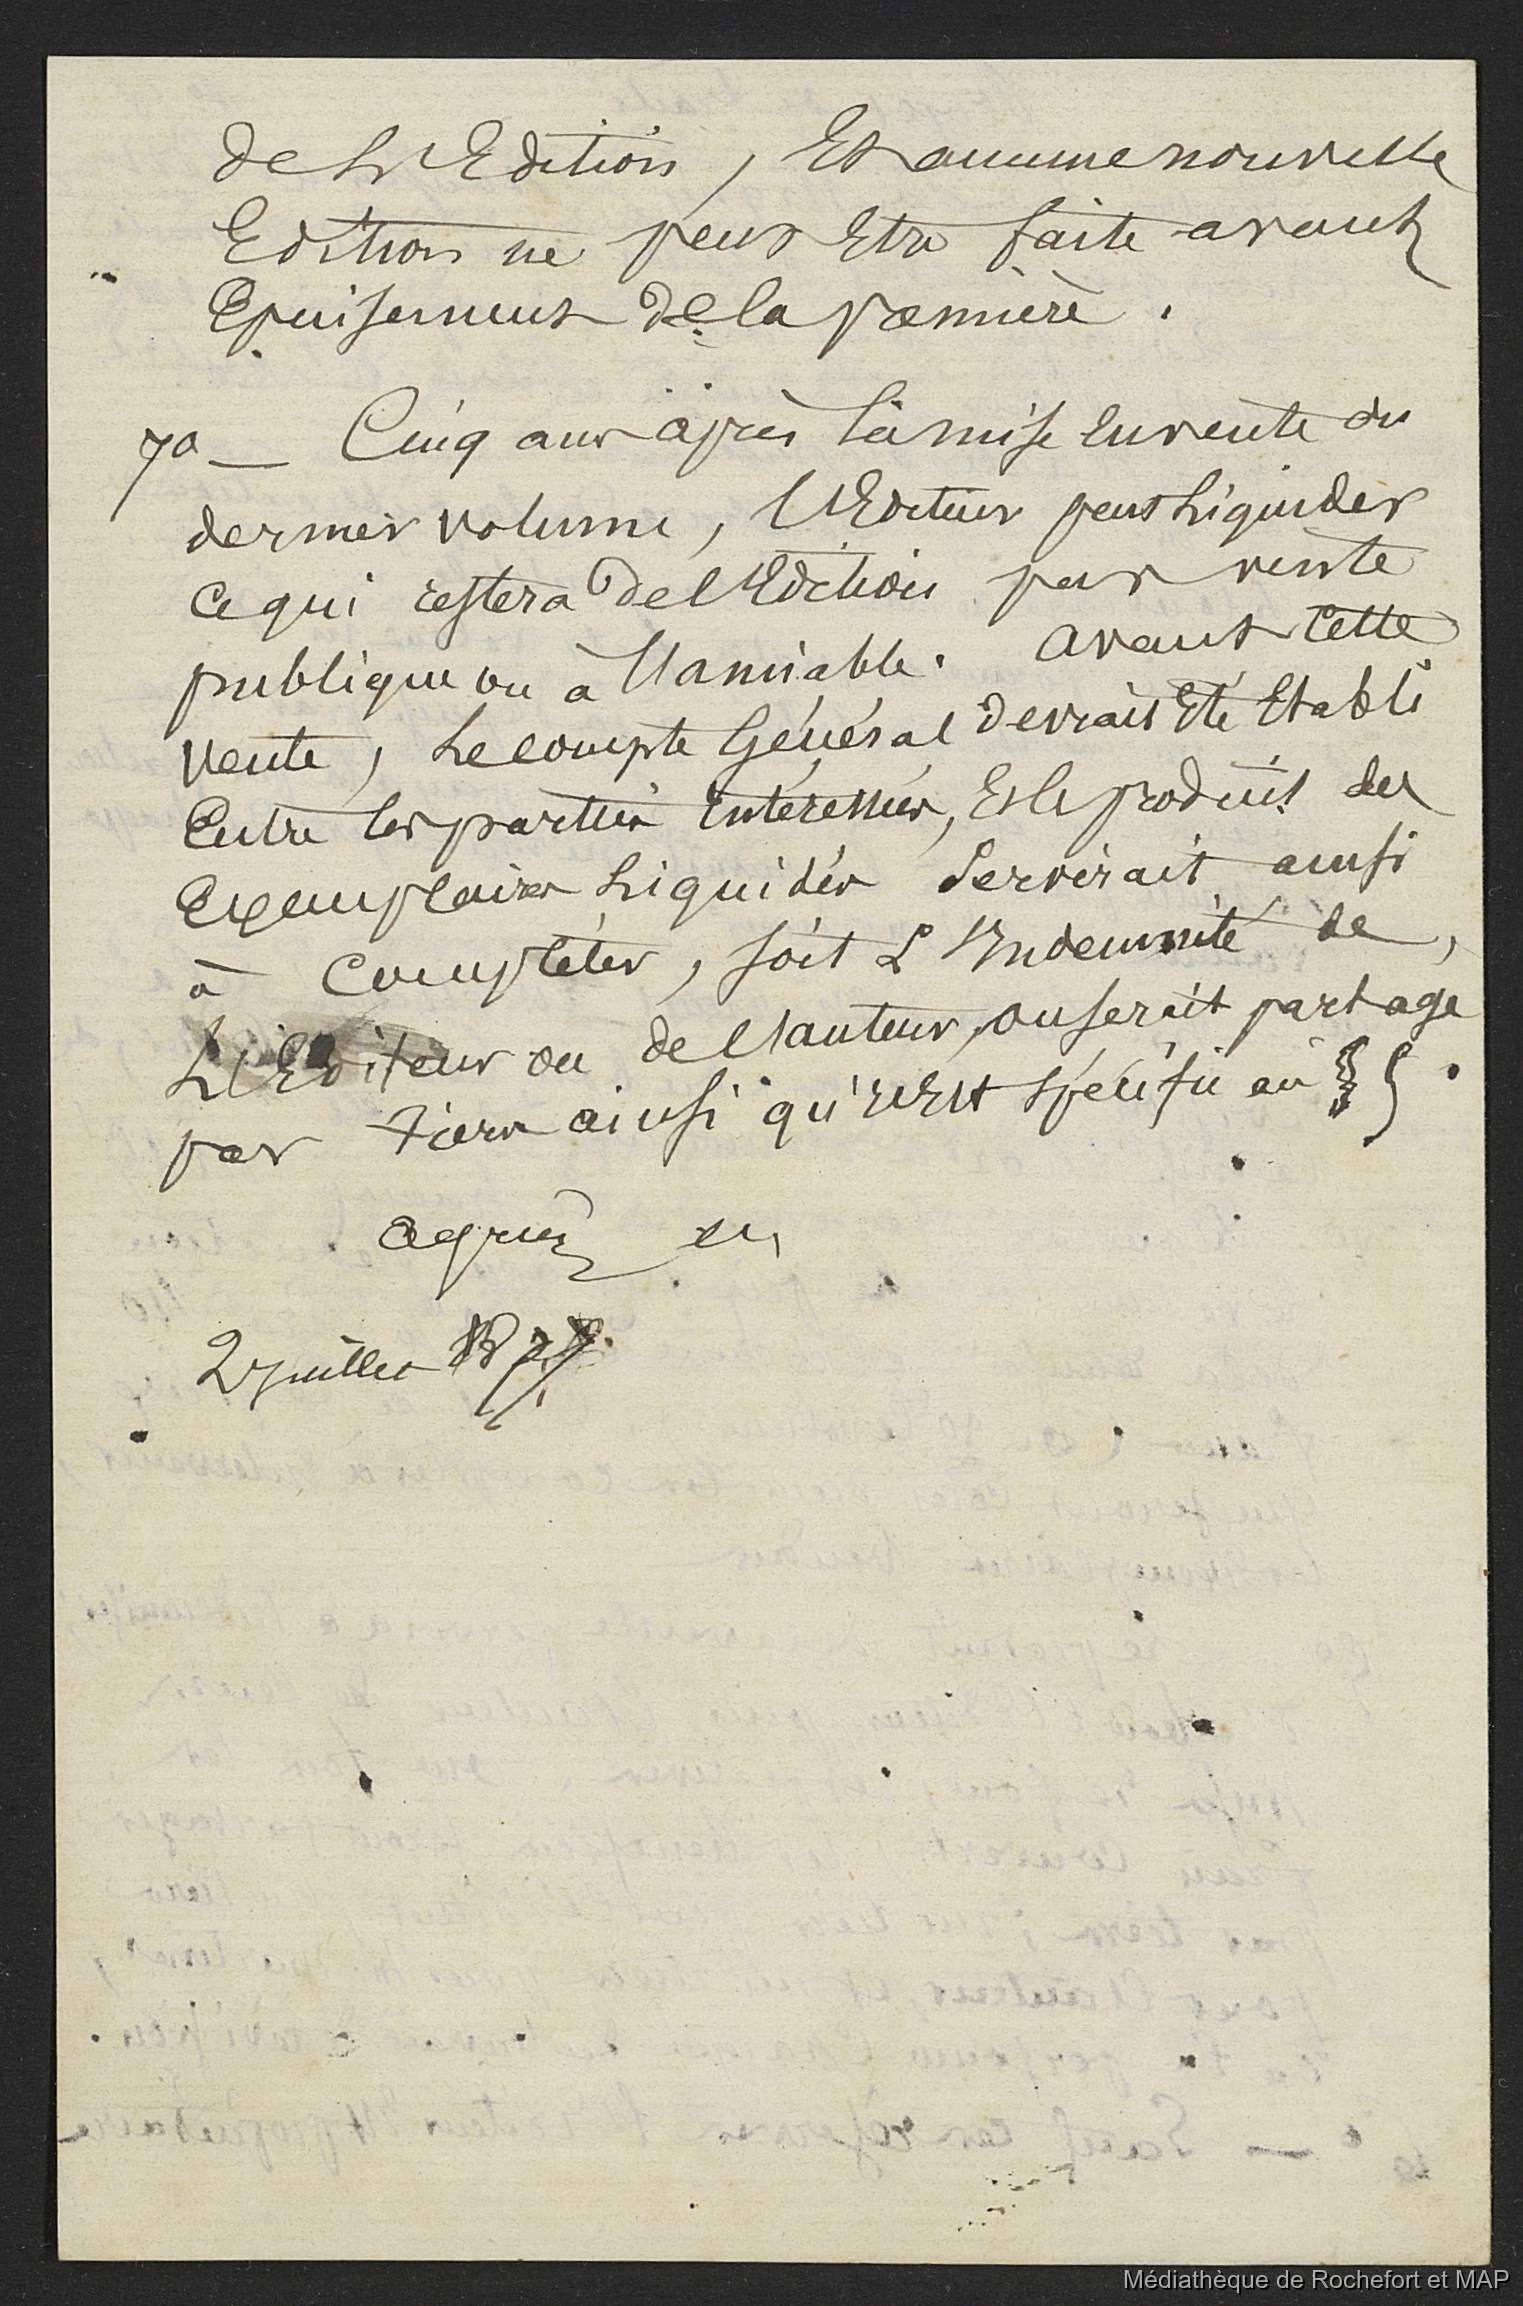 de L'Edition, Et aucune nouvelle
Edition ne peut Etre faite avant
Epuisement de la première.
7o — Cinq ans après la mise en vente du
dernier volume, l'Editeur peut Liquider
ce qui restera de l'Edition par vente
publique ou à l'amiable. avant cette
vente, Le compte Général devrait Etre Etabli
Entre les parties intéressées, Et le produit des
Exemplaires Liquidés Servirait ainsi
à compléter, soit L'Indemnité de
L'Editeur ou de l'auteur, ou serait partagé
par tiers ainsi qu'il Est spécifié au § 5.
agréez
2 juillet
Médiathèque de Rochefort et MAP